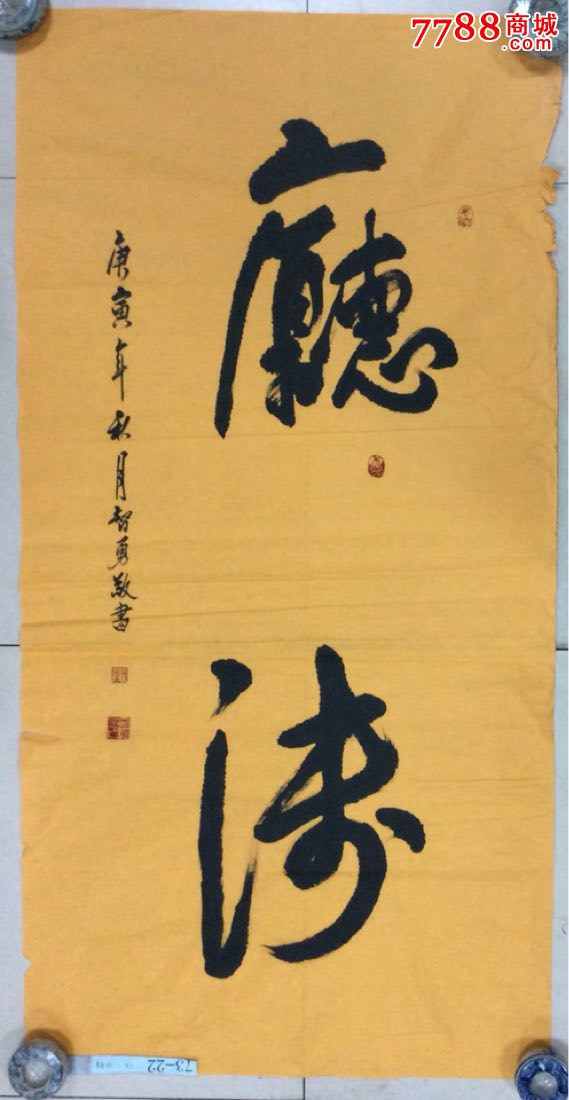 7788商城
.com
廳
涛
庚寅年秋月智勇敬書
73-22